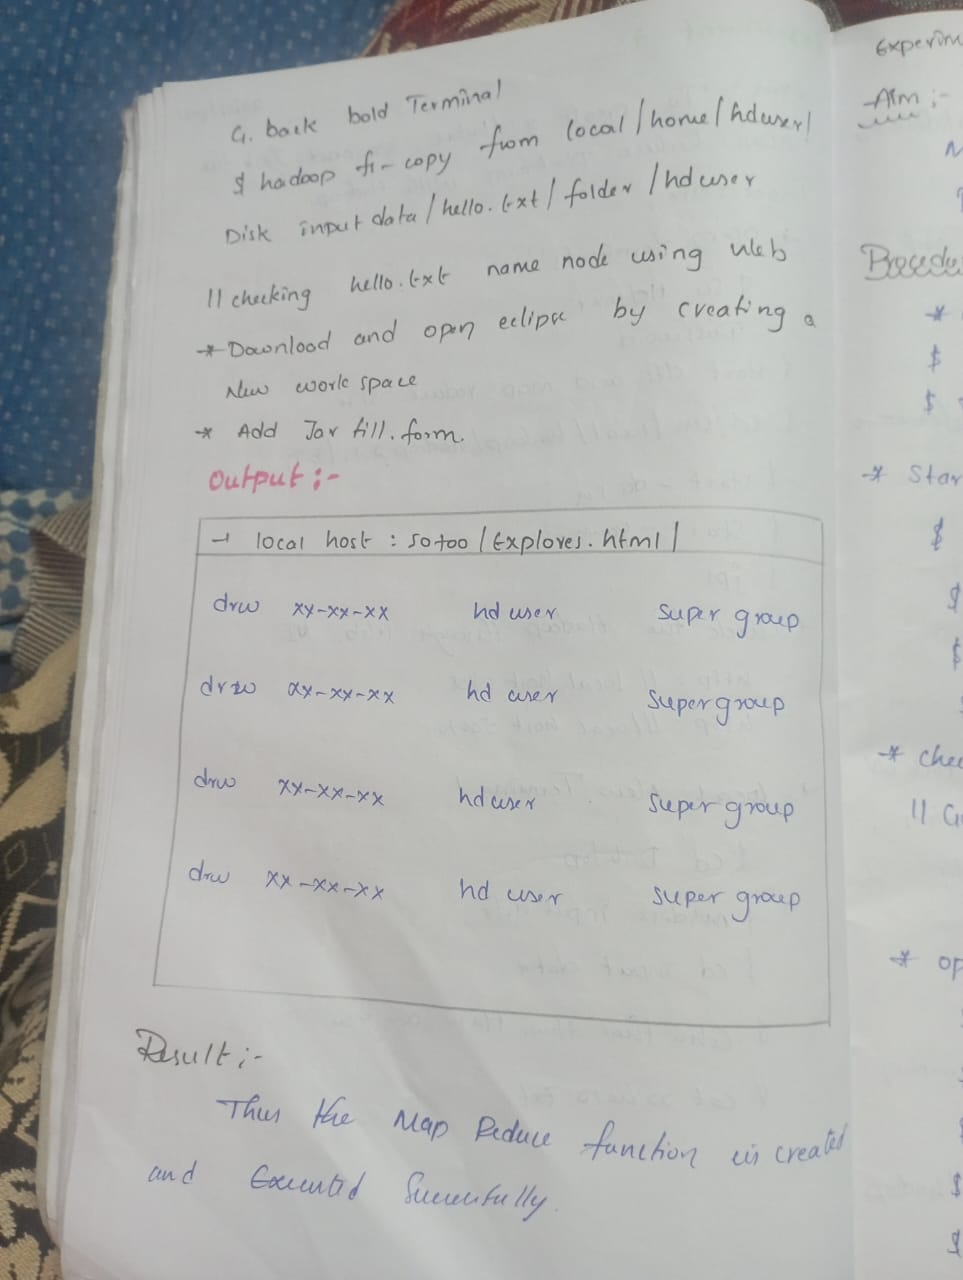 G. back bold Terminal
$ hadoop fi - copy from local /home/hduser/
Disk input data / hello.txt / folder / hduser
// checking hello.txt name node using web
* Downlood and open eclipse by creating a
New work space
* Add Jar fill.form.
Output :-
→ local host : 50700 / Explores.html /
drw xx-xx-xx hd user super group
drw xx-xx-xx hd user super group
drw xx-xx-xx hd user super group
drw xx-xx-xx hd user super group
Result :-
Thus the Map Reduce function is created
and Executed Successfully.
Experim
Aim :-
Procedu
*
$
$
* Star
$
$
$
* Chec
// G
* op
$
$